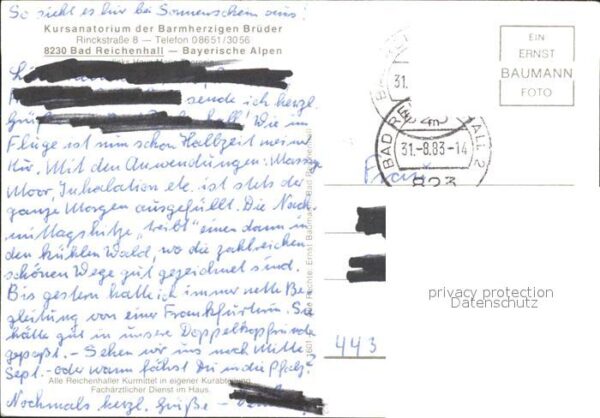 So sieht es hier bei Sonnenschein aus!
Kursanatorium der Barmherzigen Brüder
Rinckstraße 8 — Telefon 08651/3056
8230 Bad Reichenhall — Bayerische Alpen
sende ich herzl.
Wie im
Fluge ist nun schon Halbzeit meiner
Kur. Mit den Anwendungen: Massage
Moor, Inhalation etc. ist stets der
ganze Morgen ausgefüllt. Die Nach-
mittagshitze "treibt" einen dann in
den kühlen Wald, wo die zahlreichen
schönen Wege gut gezeichnet sind.
Bis gestern hatte ich immer nette Be-
gleitung von einer Frankfurterin. Sie
hätte gut in unsere Doppelkopfrunde
gepaßt. - Sehen wir uns nach Mitte
Sept. - oder wann fährst Du in die Pfalz?
Alle Reichenhaller Kurmittel in eigener Kurabteilung
Fachärztlicher Dienst im Haus.
Nochmals herzl. Grüße -
Rechte: Ernst Baumann, Bad Reichenhall
EIN
ERNST
BAUMANN
FOTO
31.
BAD
ALL 2
31.-8.83-14
823
Frau
443
privacy protection
Datenschutz